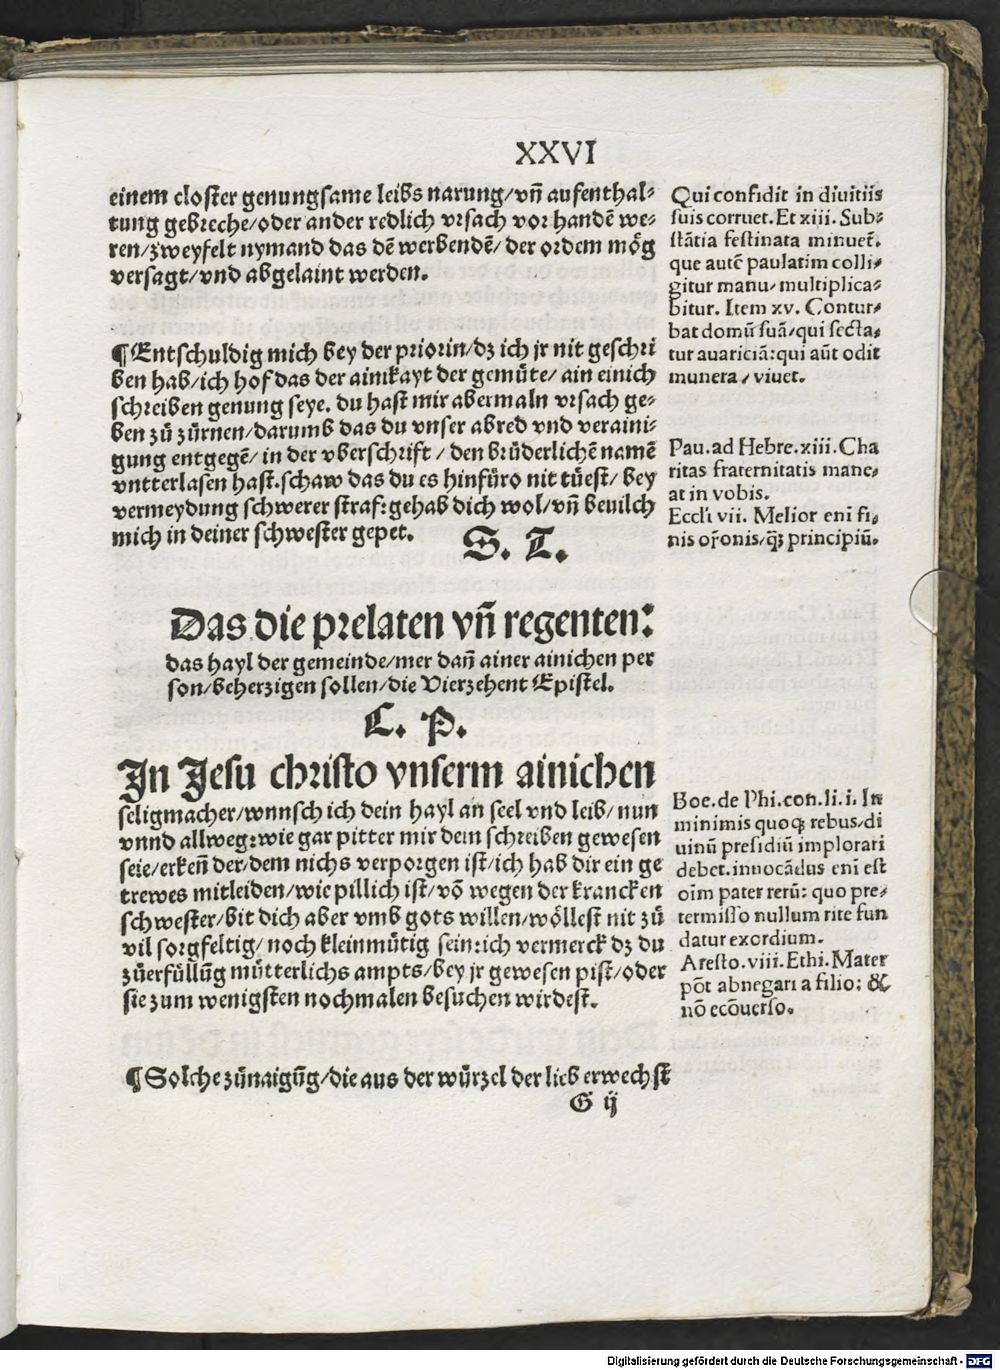 XXVI
einem closter genungsame leibs narung/vñ aufenthal⸗
tung gebreche/oder ander redlich vrsach vor handẽ we⸗
ren/zweyfelt nymand das dẽ werbendẽ/der ordem mög
versagt/vnd abgelaint werden.
¶Entschuldig mich bey der priorin/dz ich jr nit geschri
ben hab/ich hof das der ainikayt der gemüte/ain einich
schreiben genung seye. du hast mir abermaln vrsach ge⸗
ben zü zürnen/darumb das du vnser abred vnd veraini⸗
gung entgegẽ/in der vberschrift/den brüderlichẽ namẽ
vntterlasen hast.schaw das du es hinfüro nit tüest/bey
vermeydung schwerer straf:gehab dich wol/vñ beuilch
mich in deiner schwester gepet.
S. T.
Das die prelaten vñ regenten:
das hayl der gemeinde/mer dañ ainer ainichen per
son/beherzigen sollen/die Vierzehent Epistel.
C. P.
In Jesu christo vnserm ainichen
seligmacher/wnnsch ich dein hayl an seel vnd leib/nun
vnnd allweg:wie gar pitter mir dein schreiben gewesen
seie/erkeñ der/dem nichs verporgen ist/ich hab dir ein ge
trewes mitleiden/wie pillich ist/võ wegen der krancken
schwester/bit dich aber vmb gots willen/wöllest nit zü
vil sorgfeltig/noch kleinmütig sein:ich vermerck dz du
züerfüllũg mütterlichs ampts/bey jr gewesen pist/oder
sie zum wenigsten nochmalen besuchen wirdest.
¶Solche zünaigũg/die aus der würzel der lieb erwechst
G ij
Qui confidit in diuitiis
suis corruet. Et xiii. Sub⸗
stãtia festinata minuet̃.
que autẽ paulatim colli⸗
gitur manu/multiplica⸗
bitur. Item xv. Contur⸗
bat domũ suã/qui secta⸗
tur auariciã:qui aũt odit
munera/viuet.
Pau.ad Hebre.xiii.Cha
ritas fraternitatis mane⸗
at in vobis.
Eccl'i vii. Melior eni᷒ fi⸗
nis or̃onis/q̃ꝫ principiũ.
Boe.de Phi.con.li.i. In
minimis quoqꝫ rebus/di
uinũ presidiũ implorari
debet.inuocãdus enĩ est
oĩm pater rerũ: quo pre⸗
termisso nullum rite fun
datur exordium.
Aresto.viii.Ethi.Mater
põt abnegari a filio: &
nõ ecõuerso.
Digitalisierung gefördert durch die Deutsche Forschungsgemeinschaft - DFG